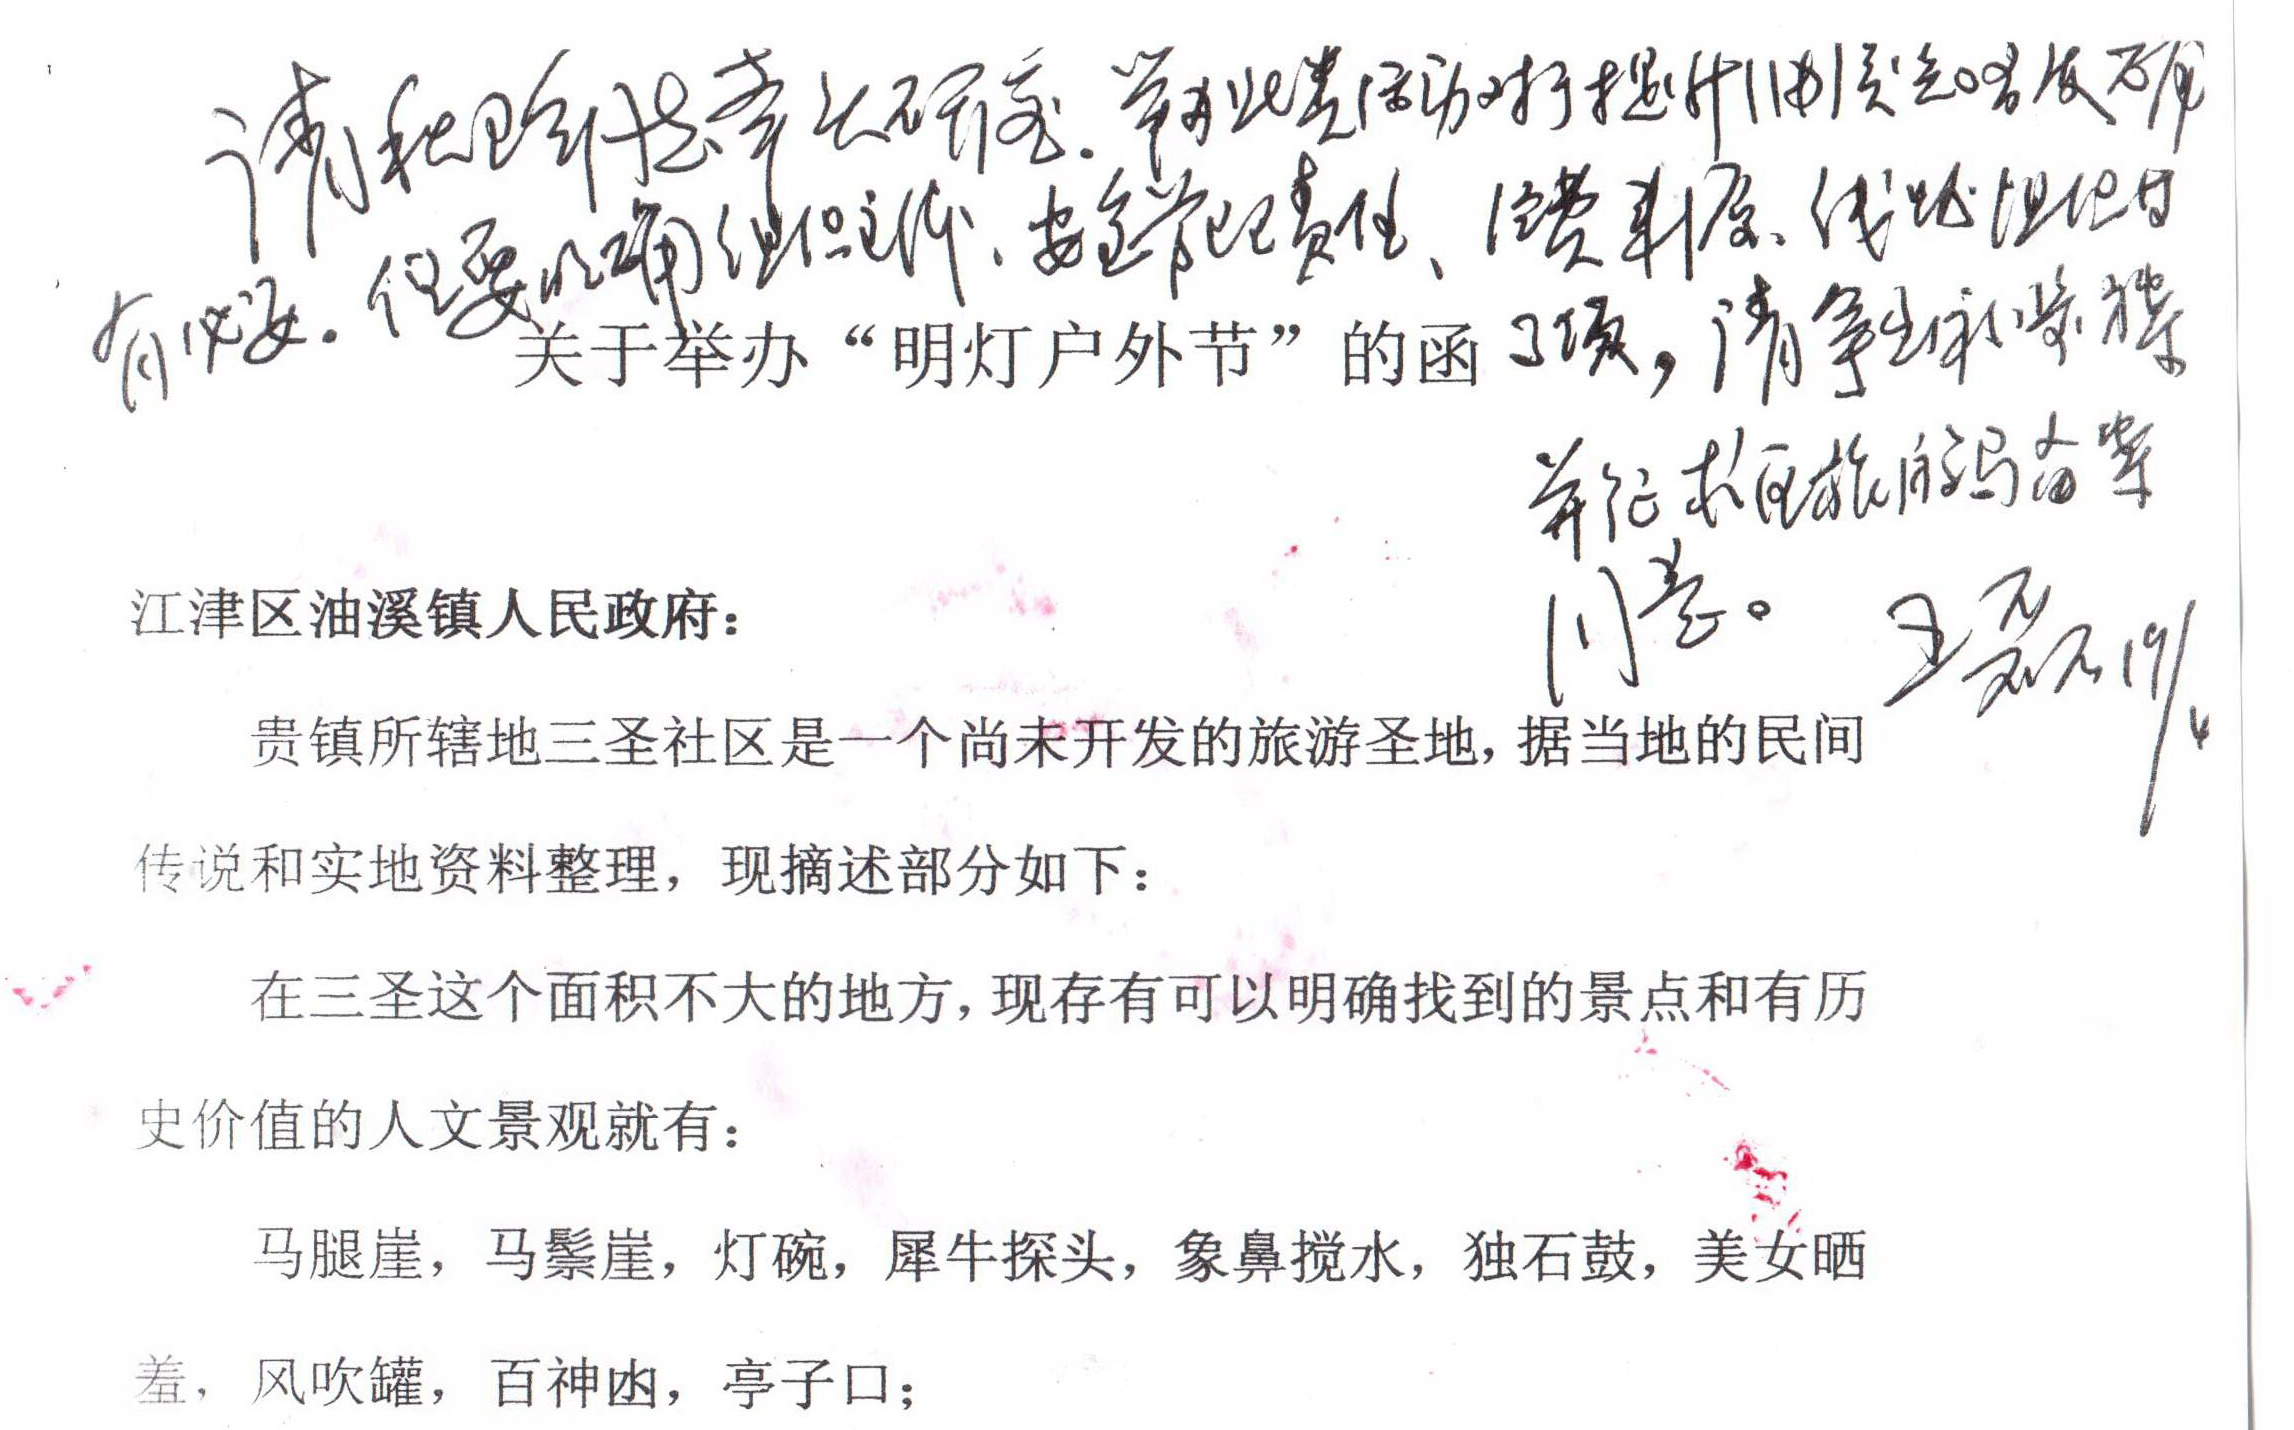 请 研究. 举办此类活动对于提升 确
有必要. 但要明确组织主体、安全管理责任、经费来源、线路
关于举办“明灯户外节”的函
事项, 请
并征求区旅游局
意。
王磊 19/4
江津区油溪镇人民政府：
贵镇所辖地三圣社区是一个尚未开发的旅游圣地，据当地的民间
传说和实地资料整理，现摘述部分如下：
在三圣这个面积不大的地方，现存有可以明确找到的景点和有历
史价值的人文景观就有：
马腿崖，马鬃崖，灯碗，犀牛探头，象鼻搅水，独石鼓，美女晒
羞，风吹罐，百神凼，亭子口；